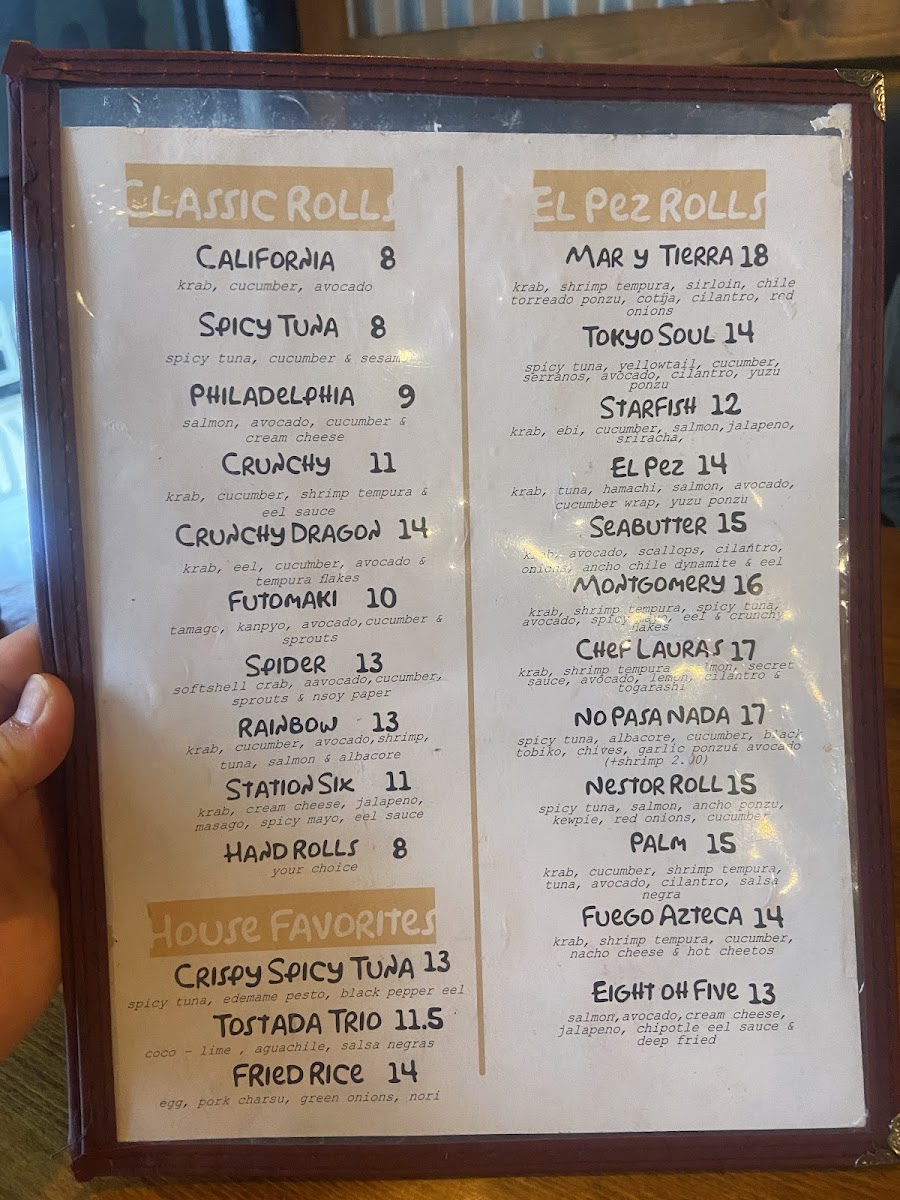 CLASSIC ROLLS
CALIFORNIA 8
krab, cucumber, avocado
SPICY TUNA 8
spicy tuna, cucumber & sesam
PHILADELPHIA 9
salmon, avocado, cucumber &
cream cheese
CRUNCHY 11
krab, cucumber, shrimp tempura &
eel sauce
CRUNCHY DRAGON 14
krab, eel, cucumber, avocado &
tempura flakes
FUTOMAKI 10
tamago, kanpyo, avocado,cucumber &
sprouts
SPIDER 13
softshell crab, aavocado,cucumber,
sprouts & nsoy paper
RAINBOW 13
krab, cucumber, avocado,shrimp,
tuna, salmon & albacore
STATION SIX 11
krab, cream cheese, jalapeno,
masago, spicy mayo, eel sauce
HAND ROLLS 8
your choice
HOUSE FAVORITES
CRISPY SPICY TUNA 13
spicy tuna, edemame pesto, black pepper eel
TOSTADA TRIO 11.5
coco - lime , aguachile, salsa negras
FRIED RICE 14
egg, pork charsu, green onions, nori
EL PEZ ROLLS
MAR Y TIERRA 18
krab, shrimp tempura, sirloin, chile
torreado ponzu, cotija, cilantro, red
onions
TOKYO SOUL 14
spicy tuna, yellowtail, cucumber,
serranos, avocado, cilantro, yuzu
ponzu
STARFISH 12
krab, ebi, cucumber, salmon,jalapeno,
sriracha,
EL PEZ 14
krab, tuna, hamachi, salmon, avocado,
cucumber wrap, yuzu ponzu
SEABUTTER 15
krab, avocado, scallops, cilantro,
onions, ancho chile dynamite & eel
MONTGOMERY 16
krab, shrimp tempura, spicy tuna,
avocado, spicy mayo, eel & crunchy
flakes
CHEF LAURA'S 17
krab, shrimp tempura, salmon, secret
sauce, avocado, lemon, cilantro &
togarashi
NO PASA NADA 17
spicy tuna, albacore, cucumber, black
tobiko, chives, garlic ponzu& avocado
(+shrimp 2.00)
NESTOR ROLL 15
spicy tuna, salmon, ancho ponzu,
kewpie, red onions, cucumber
PALM 15
krab, cucumber, shrimp tempura,
tuna, avocado, cilantro, salsa
negra
FUEGO AZTECA 14
krab, shrimp tempura, cucumber,
nacho cheese & hot cheetos
EIGHT OH FIVE 13
salmon,avocado,cream cheese,
jalapeno, chipotle eel sauce &
deep fried